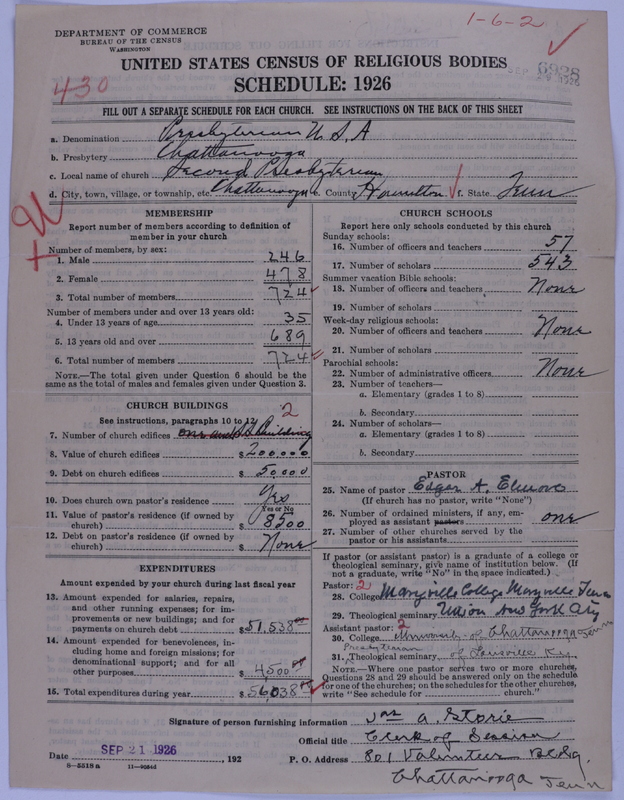 DEPARTMENT OF COMMERCE
BUREAU OF THE CENSUS
WASHINGTON
1-6-2
UNITED STATES CENSUS OF RELIGIOUS BODIES
SCHEDULE: 1926
6928
430
FILL OUT A SEPARATE SCHEDULE FOR EACH CHURCH. SEE INSTRUCTIONS ON THE BACK OF THIS SHEET
a. Denomination Presbyterian U S A
b. Presbytery Chattanooga
c. Local name of church Second Presbyterian
d. City, town, village, or township, etc. Chattanooga e. County Hamilton f. State Tenn
MEMBERSHIP
Report number of members according to definition of member in your church
Number of members, by sex:
1. Male 246
2. Female 478
3. Total number of members 724
Number of members under and over 13 years old:
4. Under 13 years of age 35
5. 13 years old and over 689
6. Total number of members 724
NOTE.—The total given under Question 6 should be the
same as the total of males and females given under Question 3.
CHURCH BUILDINGS
See instructions, paragraphs 10 to 12
2
7. Number of church edifices one and S.S. Building
8. Value of church edifices $200000
9. Debt on church edifices $50,000
10. Does church own pastor's residence Yes
Yes or No
11. Value of pastor's residence (if owned by
church) $8500
12. Debt on pastor's residence (if owned by
church) $None
EXPENDITURES
Amount expended by your church during last fiscal year
13. Amount expended for salaries, repairs,
and other running expenses; for im-
provements or new buildings; and for
payments on church debt $51,538
14. Amount expended for benevolences, in-
cluding home and foreign missions; for
denominational support; and for all
other purposes $4500
15. Total expenditures during year $56,038
CHURCH SCHOOLS
Report here only schools conducted by this church
Sunday schools:
16. Number of officers and teachers 57
17. Number of scholars 543
Summer vacation Bible schools:
18. Number of officers and teachers None
19. Number of scholars
Week-day religious schools:
20. Number of officers and teachers None
21. Number of scholars
Parochial schools:
22. Number of administrative officers None
23. Number of teachers—
a. Elementary (grades 1 to 8)
b. Secondary
24. Number of scholars—
a. Elementary (grades 1 to 8)
b. Secondary
PASTOR
25. Name of pastor Edgar A. Elmore
(If church has no pastor, write "None")
26. Number of ordained ministers, if any, em-
ployed as assistant pastors one
27. Number of other churches served by the
pastor or his assistants
If pastor (or assistant pastor) is a graduate of a college or
theological seminary, give name of institution below. (If
not a graduate, write "No" in the space indicated.)
Pastor: 2
28. College Maryville College Maryville Tenn
29. Theological seminary Union New York City
Assistant pastor: 2
30. College University of Chattanooga Tenn
Presbyterian
31. Theological seminary of Louisville Ky
NOTE.—Where one pastor serves two or more churches,
Questions 28 and 29 should be answered only on the schedule
for one of the churches; on the schedules for the other churches,
write "See schedule for church."
Signature of person furnishing information Jas A. Storie
Official title Clerk of Session
Date SEP 21 1926, 192 P. O. Address 801 Volunteer Bldg.
8—5518a 11—9064d
Chattanooga Tenn